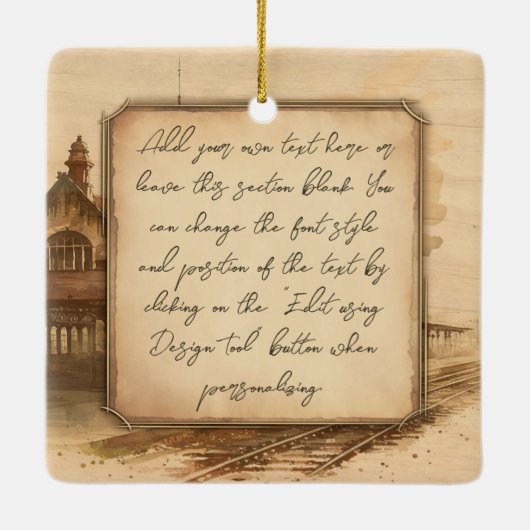 Add your own text here or
leave this section blank. You
can change the font style
and position of the text by
clicking on the "Edit using
Design tool" button when
personalizing.